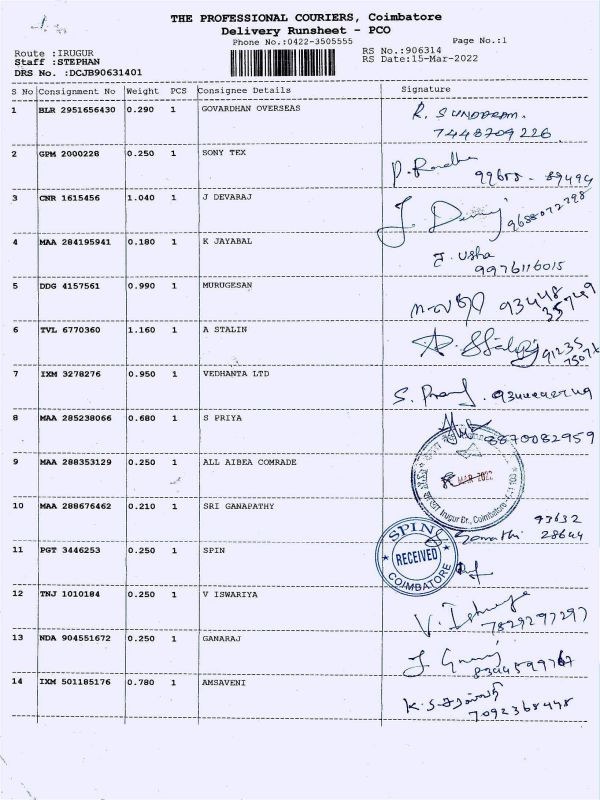 THE PROFESSIONAL COURIERS, Coimbatore
Delivery Runsheet - PCO
Phone No.:0422-3505555 Page No.:1
Route :IRUGUR RS No.:906314
Staff :STEPHAN RS Date:15-Mar-2022
DRS No. :DCJB90631401
S No Consignment No Weight PCS Consignee Details Signature
1 BLR 2951656430 0.290 1 GOVARDHAN OVERSEAS R. SUNDARAM.
7448709226
2 GPM 2000228 0.250 1 SONY TEX
3 CNR 1615456 1.040 1 J DEVARAJ
9688072798
4 MAA 284195941 0.180 1 K JAYABAL J. Usha
9976116015
5 DDG 4157561 0.990 1 MURUGESAN 93448
35749
6 TVL 6770360 1.160 1 A STALIN 91235
7 IXM 3278276 0.950 1 VEDHANTA LTD
8 MAA 285238066 0.680 1 S PRIYA
8870082959
9 MAA 288353129 0.250 1 ALL AIBEA COMRADE
MAR 2022
Irugur Br., Coimbatore
10 MAA 288676462 0.210 1 SRI GANAPATHY 93632
28644
11 PGT 3446253 0.250 1 SPIN SPIN
RECEIVED
COIMBATORE
12 TNJ 1010184 0.250 1 V ISWARIYA
7829297297
13 NDA 904551672 0.250 1 GANARAJ
8344599767
14 IXM 501185176 0.780 1 AMSAVENI
7092368448